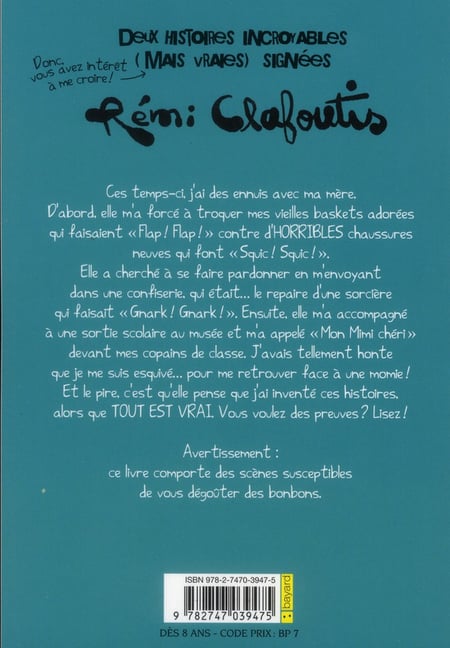 Deux histoires incroyables
Donc,
vous avez intérêt
à me croire !
(Mais vraies) signées
Rémi Clafoutis
Ces temps-ci, j'ai des ennuis avec ma mère.
D'abord, elle m'a forcé à troquer mes vieilles baskets adorées
qui faisaient « Flap ! Flap ! » contre d'HORRIBLES chaussures
neuves qui font « Squic ! Squic ! ».
Elle a cherché à se faire pardonner en m'envoyant
dans une confiserie, qui était... le repaire d'une sorcière
qui faisait « Gnark ! Gnark ! ». Ensuite, elle m'a accompagné
à une sortie scolaire au musée et m'a appelé « Mon Mimi chéri »
devant mes copains de classe. J'avais tellement honte
que je me suis esquivé... pour me retrouver face à une momie !
Et le pire, c'est qu'elle pense que j'ai inventé ces histoires,
alors que TOUT EST VRAI. Vous voulez des preuves ? Lisez !
Avertissement :
ce livre comporte des scènes susceptibles
de vous dégoûter des bonbons.
ISBN 978-2-7470-3947-5
9 782747 039475
bayard
DÈS 8 ANS - CODE PRIX : BP 7